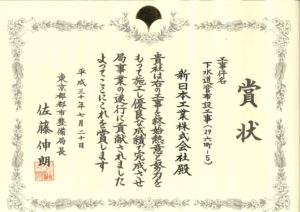 賞状
工事件名
下水道管布設工事(29六町-5)
新日本工業株式会社殿
貴社は右の工事を終始熱意と努力を
もって施工し優良な成績で完成させ
局事業の遂行に貢献されました
よってここにこれを賞します
平成三十年七月二十日
東京都都市整備局長
佐藤伸朗